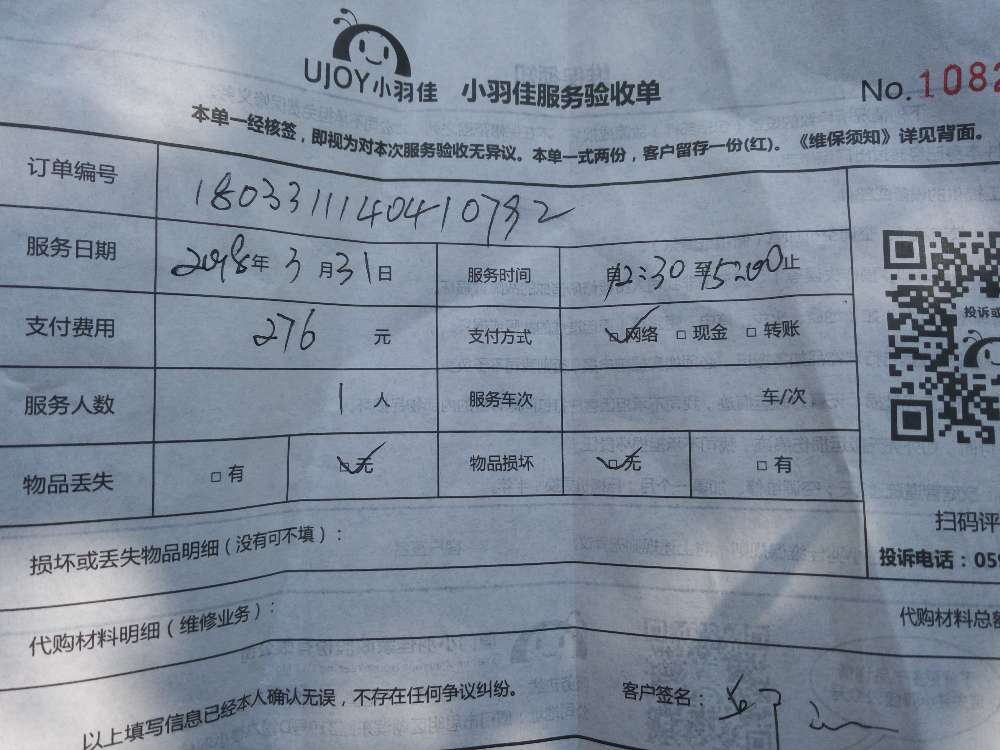 UJOY小羽佳 小羽佳服务验收单 No.1082
本单一经核签，即视为对本次服务验收无异议。本单一式两份，客户留存一份(红)。《维保须知》详见背面。
订单编号 1803311140410792
服务日期 2018年3月31日 服务时间 自12:30至15:00止
支付费用 276 元 支付方式 ☑网络 □现金 □转账
投诉或
服务人数 1人 服务车次 车/次
物品丢失 □有 ☑无 物品损坏 ☑无 □有
扫码评
损坏或丢失物品明细(没有可不填)：
投诉电话：059
代购材料明细(维修业务)：
代购材料总额
以上填写信息已经本人确认无误，不存在任何争议纠纷。 客户签名：